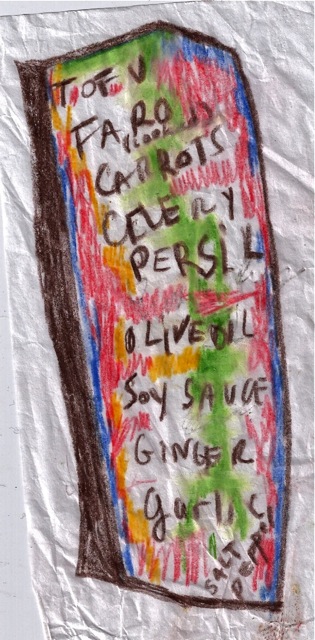 TOFU
FARO
(COOKED)
CARROTS
CELERY
PERSIL
OLIVE OIL
SOY SAUCE
GINGER
garlic
SALT
PEPPER